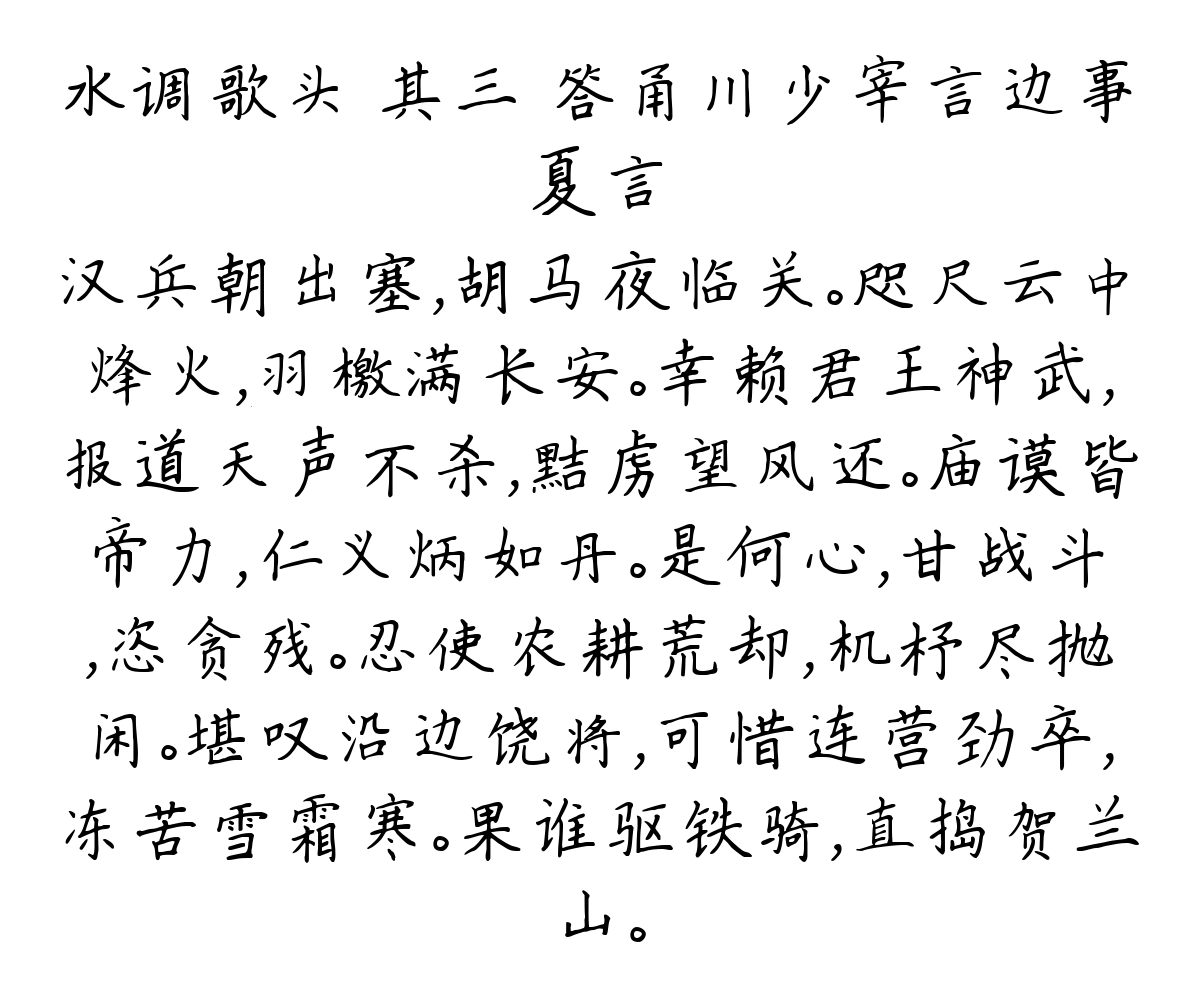 水调歌头 其三 答甬川少宰言边事
夏言
汉兵朝出塞,胡马夜临关。咫尺云中
烽火,羽檄满长安。幸赖君王神武,
报道天声不杀,黠虏望风还。庙谟皆
帝力,仁义炳如丹。是何心,甘战斗
,恣贪残。忍使农耕荒却,机杼尽抛
闲。堪叹沿边饶将,可惜连营劲卒,
冻苦雪霜寒。果谁驱铁骑,直捣贺兰
山。